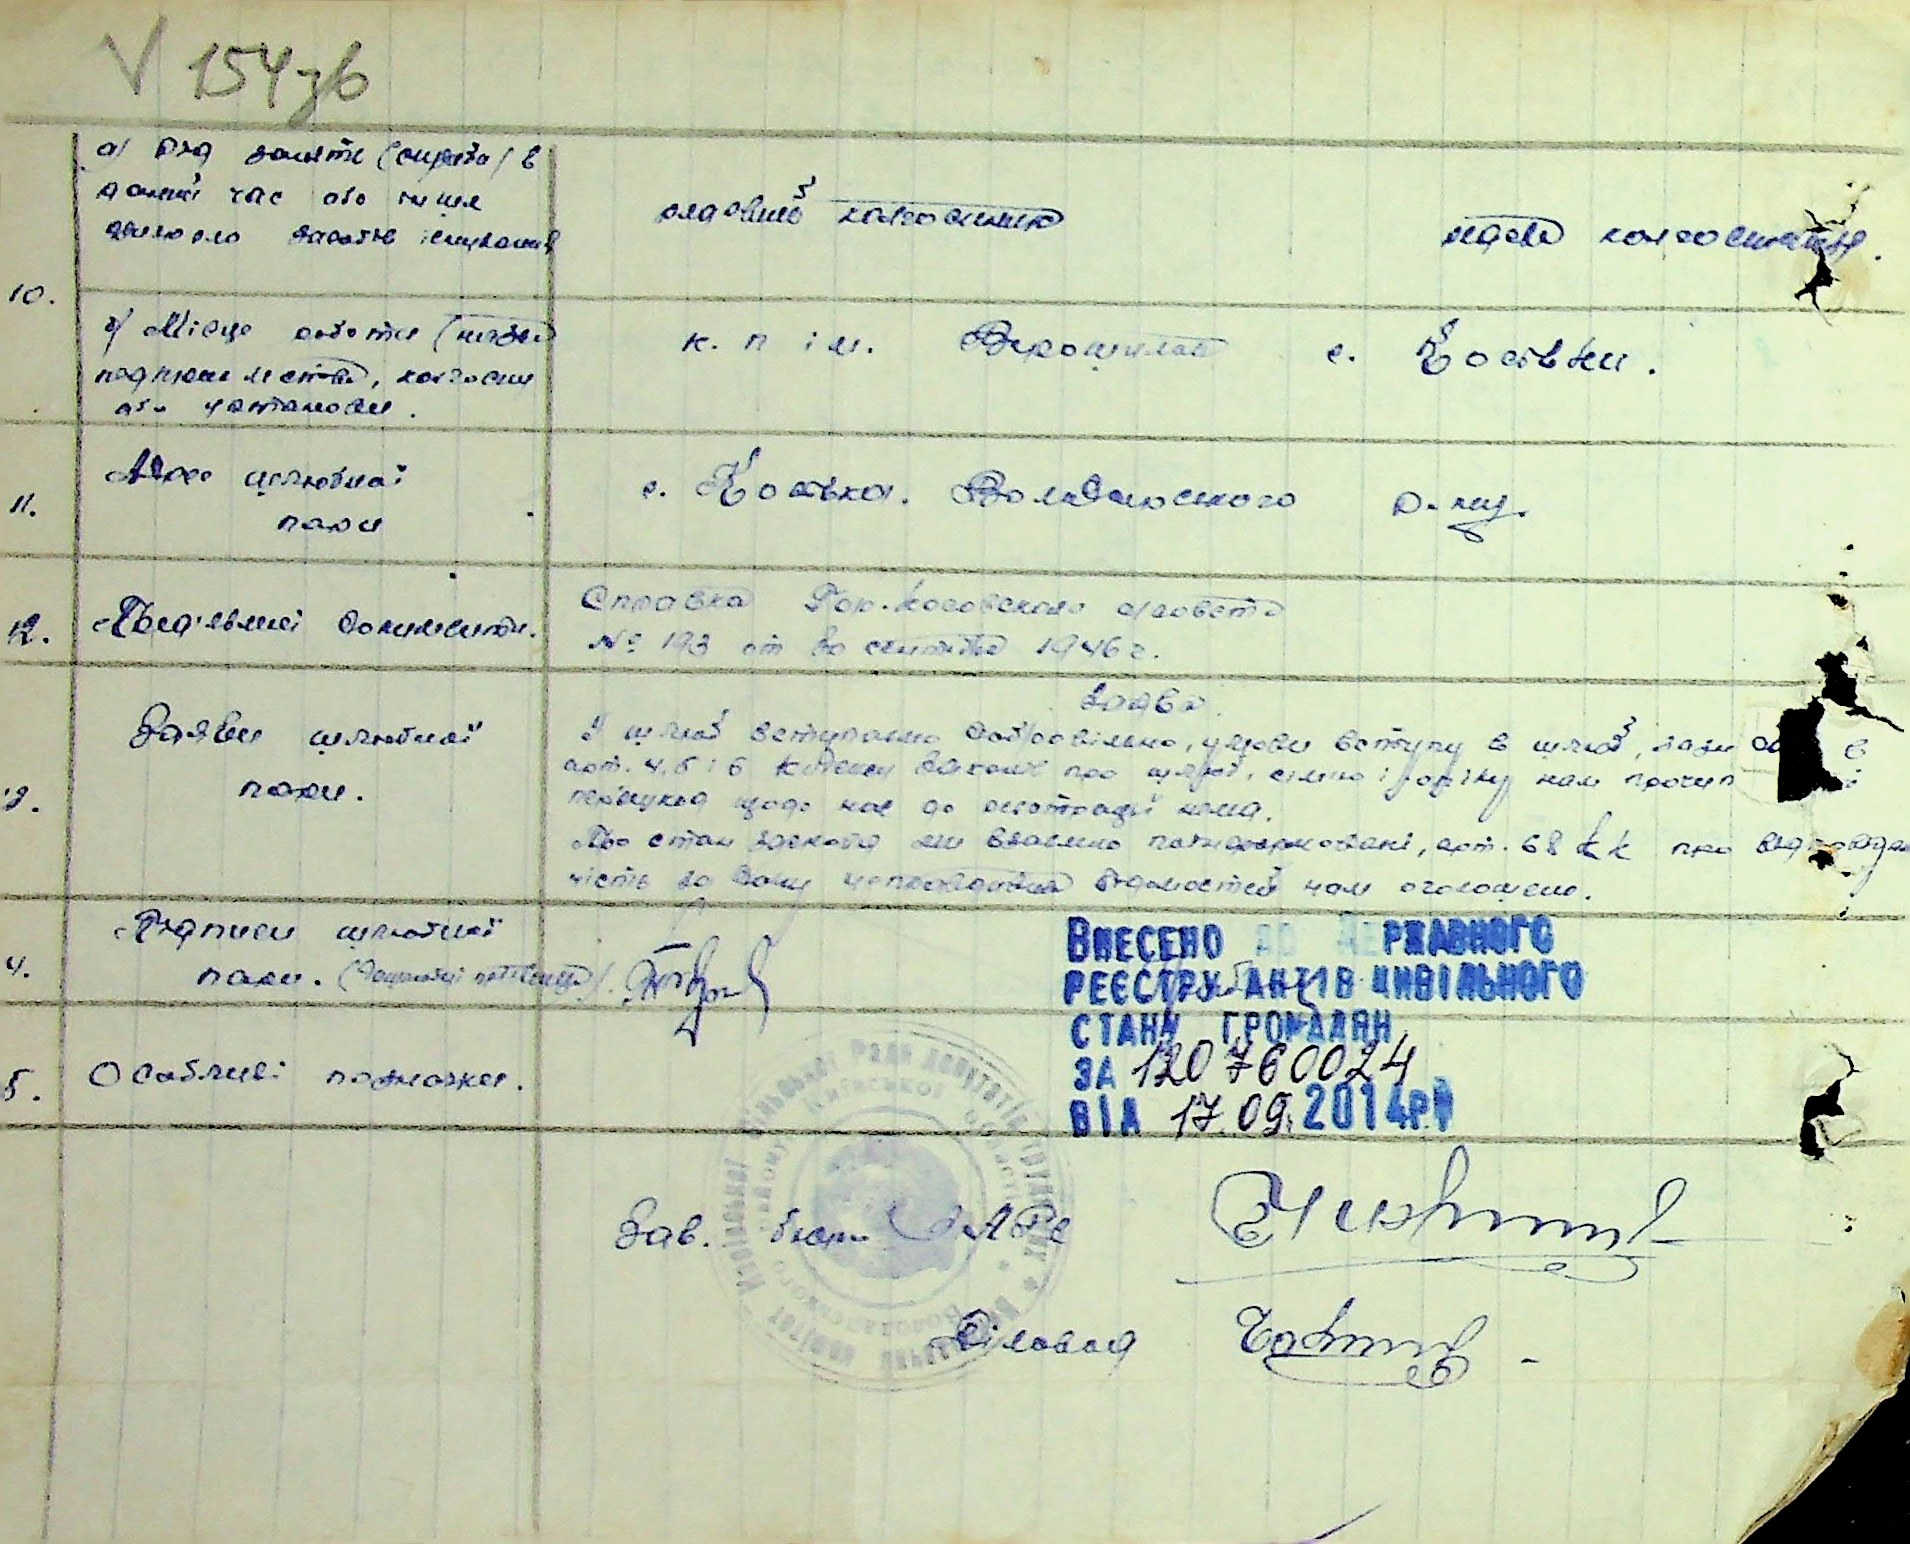 V 154 зв
а) Вид занять (служба) в
даний час або інше
джерело засобів існування
рядовий колгоспник
рядова колгоспниця.
10.
б) Місце роботи (назва
підприємства, колгоспи
або установи.
к. п ім. Ворошилова с. Косівки.
11.
Адрес шлюбної
пари
с. Косівка. Володарського р-ну.
12.
Пред'явлені документи.
Справка Гор. сельсовета
№ 193 от 20 сентября 1946 г.
Заява
Заяви шлюбної
пари.
У шлюб вступаємо добровільно, умови вступу в шлюб, зазн в
арт. 4, 5 і 6 Кодексу законів про шлюб, сім'ю і опіку нам прочит
перешкод щодо нас до реєстрації нема.
Про стан здоров'я ми взаємно поінформовані, арт. 68 КК про відповідаль
ність за дачу неправдивих відомостей нам оголошено.
4.
Підписи шлюбної
пари. (Дошлюбні прізвища).
ВНЕСЕНО ДО ДЕРЖАВНОГО
РЕЄСТРУ АКТІВ ЦИВІЛЬНОГО
СТАНУ ГРОМАДЯН
ЗА 120760024
ВІД 17.09.2014р.
5.
Особливі помітки.
Зав. бюро ЗАГС
Діловод